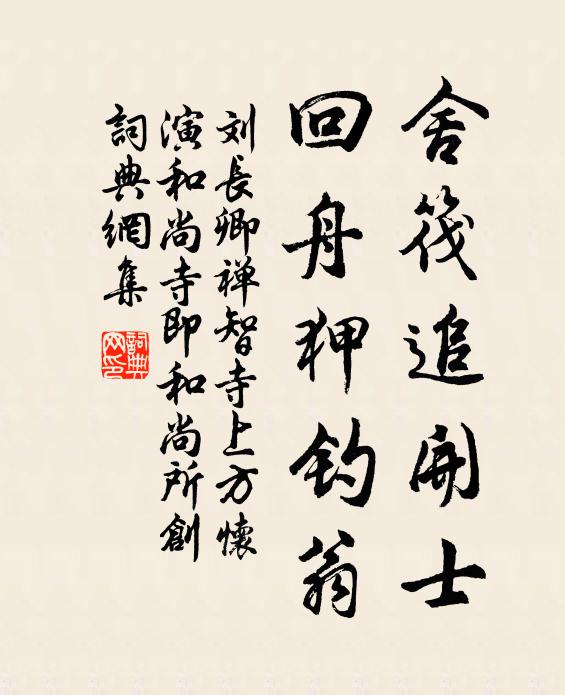 舍筏追開士
回舟狎钓翁
刘長卿禅智寺上方懷
演和尚寺即和尚所創
詞典網集
詞典网印